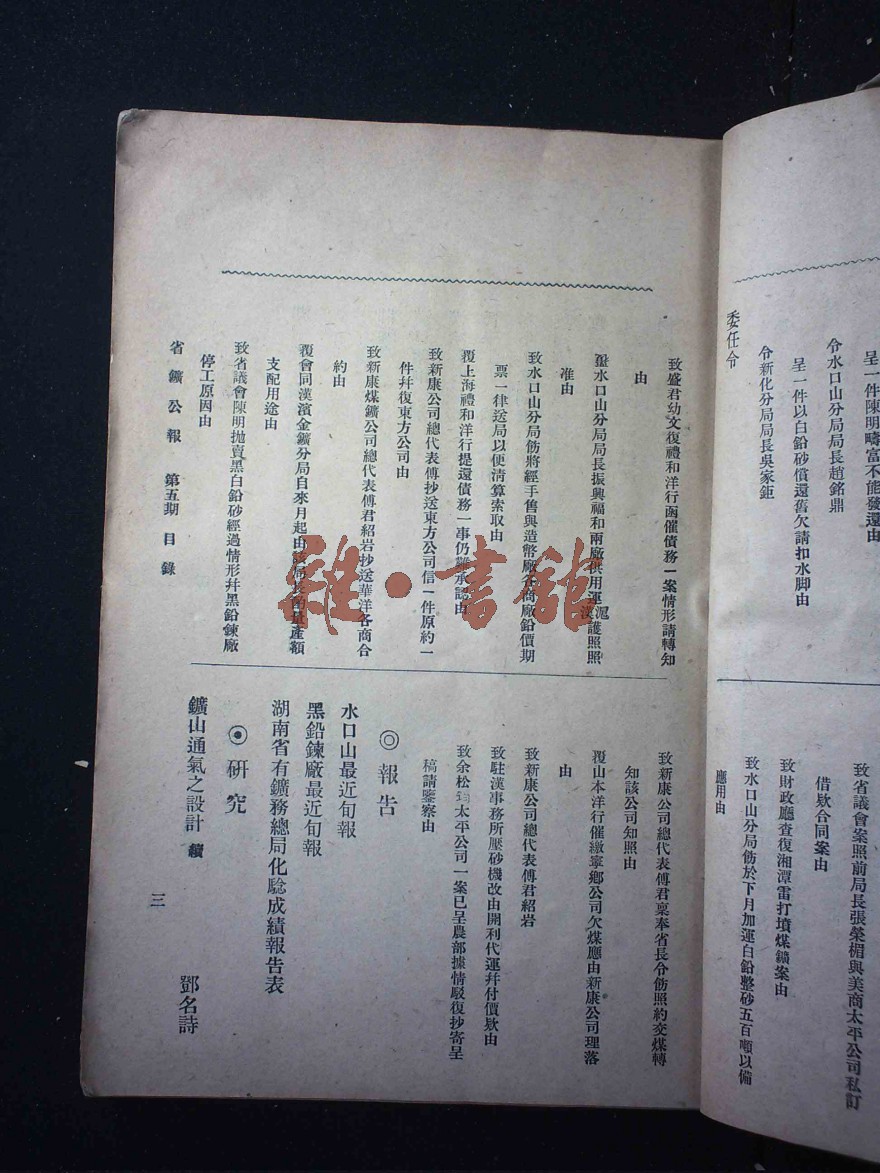 呈一件陳明疇富不能發還由
令水口山分局局長趙銘鼎
呈一件以白鉛砂償還舊欠請扣水脚由
令新化分局局長吳家鉅
委任令
致省議會案照前局長張榮楣與美商太平公司私訂
借欵合同案由
致財政廳查復湘潭雷打墳煤鑛案由
致水口山分局飭於下月加運白鉛整砂五百噸以備
應用由
致盛君幼文復禮和洋行函催債務一案情形請轉知
由
水口山分局局長振興福和兩廠供用運滬漢護照照
准由
致水口山分局飭將經手售與造幣廠各商廠鉛價期
票一律送局以便清算索取由
覆上海禮和洋行提還債務一事仍難承認由
致新康公司總代表傅抄送東方公司信一件原約一
件幷復東方公司由
致新康煤鑛公司總代表傅君紹岩抄送華洋各商合
約由
覆會同漢濱金鑛分局自來月起由該局長酌量產額
支配用途由
致省議會陳明抛賣黑白鉛砂經過情形幷黑鉛鍊廠
停工原因由
致新康公司總代表傅君稟奉省長令飭照約交煤轉
知該公司知照由
覆山本洋行催繳寧鄉公司欠煤應由新康公司理落
由
致新康公司總代表傅君紹岩
致駐漢事務所壓砂機改由開利代運幷付價欵由
致余松筠太平公司一案已呈農部據情駁復抄寄呈
稿請鑒察由
◎報告
水口山最近旬報
黑鉛鍊廠最近旬報
湖南省有鑛務總局化騐成績報告表
◉研究
鑛山通氣之設計 續 鄧名詩
省鑛公報 第五期 目錄 三
雜·書館